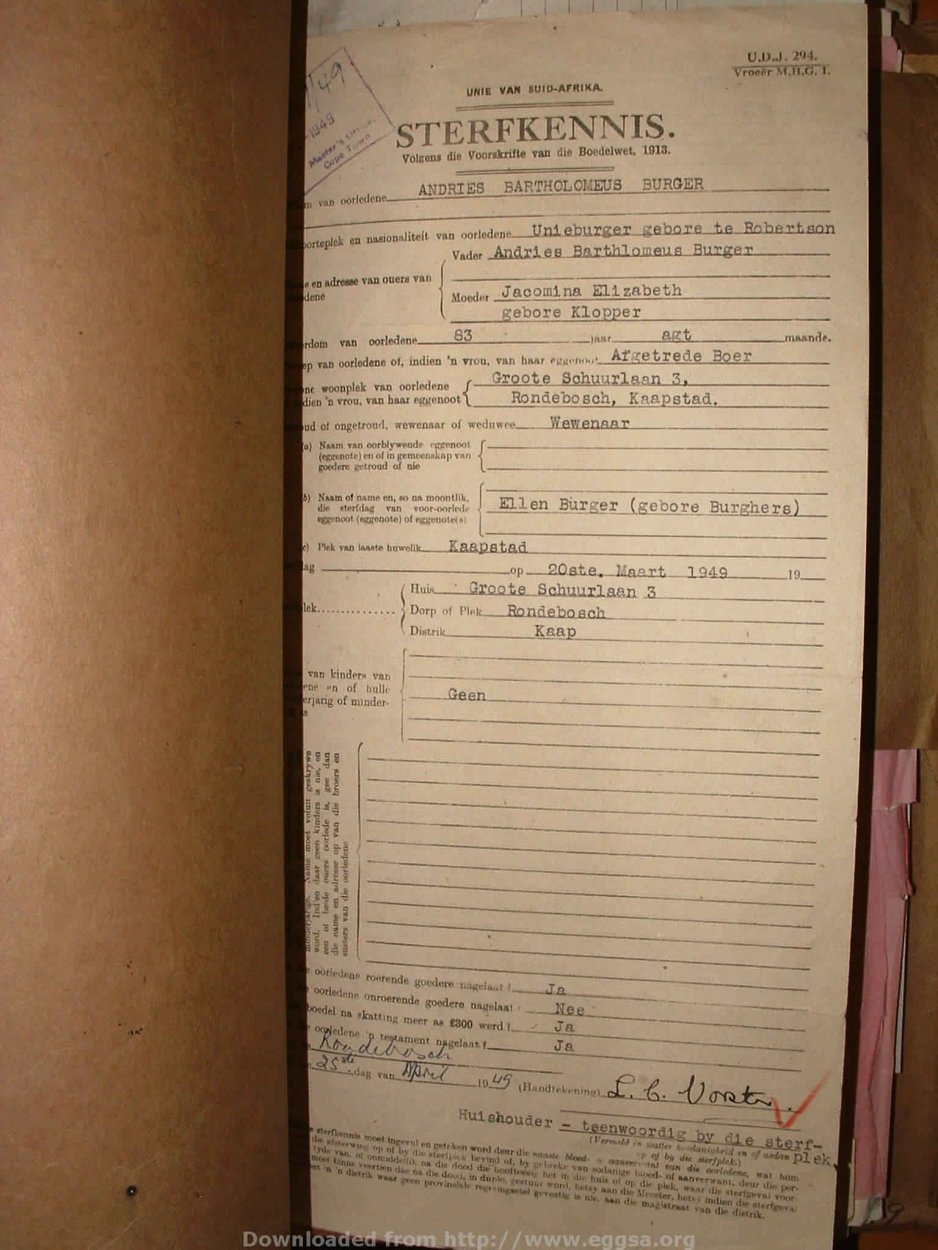 U.D.J. 294.
Vroeër M.H.G. 1.
/49
-1949
Master's
Cape Town
UNIE VAN SUID-AFRIKA.
STERFKENNIS.
Volgens die Voorskrifte van die Boedelwet, 1913.
van oorledene ANDRIES BARTHOLOMEUS BURGER
orteplek en nasionaliteit van oorledene Unieburger gebore te Robertson
Vader Andries Barthlomeus Burger
en adresse van ouers van
dene
Moeder Jacomina Elizabeth
gebore Klopper
rdom van oorledene 83 jaar agt maande.
ep van oorledene of, indien 'n vrou, van haar eggenoot Afgetrede Boer
one woonplek van oorledene Groote Schuurlaan 3,
dien 'n vrou, van haar eggenoot Rondebosch, Kaapstad.
ud of ongetroud, wewenaar of weduwee Wewenaar
a) Naam van oorblywende eggenoot
(eggenote) en of in gemeenskap van
goedere getroud of nie
b) Naam of name en, so na moontlik,
die sterfdag van voor-oorlede
eggenoot (eggenote) of eggenote(s)
Ellen Burger (gebore Burghers)
c) Plek van laaste huwelik Kaapstad
ag op 20ste. Maart 1949 19
Huis Groote Schuurlaan 3
lek Dorp of Plek Rondebosch
Distrik Kaap
van kinders van
ene en of hulle
erjarig of minder-
Geen
minderjarige. Name moet voluit geskrywe
word. Indien daar geen kinders is nie, en
een of beide ouers oorlede is, gee dan
die name en adresse op van die broers en
susters van die oorledene
oorledene roerende goedere nagelaat? Ja
oorledene onroerende goedere nagelaat? Nee
boedel na skatting meer as £300 werd? Ja
oorledene 'n testament nagelaat? Ja
Rondebosch
25ste dag van April 1949 (Handtekening) L. C. Vorster
Huishouder - teenwoordig by die sterf-
plek
(Vermeld in watter hoedanigheid en of onder
op of by die sterfplek.)
sterfkennis moet ingevul en geteken word deur die naaste bloed- of aanverwant van die oorledene, wat hom
die afsterwing op of by die sterfplek bevind of, by gebreke van sodanige bloed- of aanverwant, deur die per-
moet binne veertien dae na die dood, in duplo, gestuur word, hetsy aan die Meester, hetsy indien die sterfgeval
in 'n distrik waar geen provinsiale regeringsetel gevestig is nie, aan die magistraat van die distrik.
Downloaded from http://www.eggsa.org